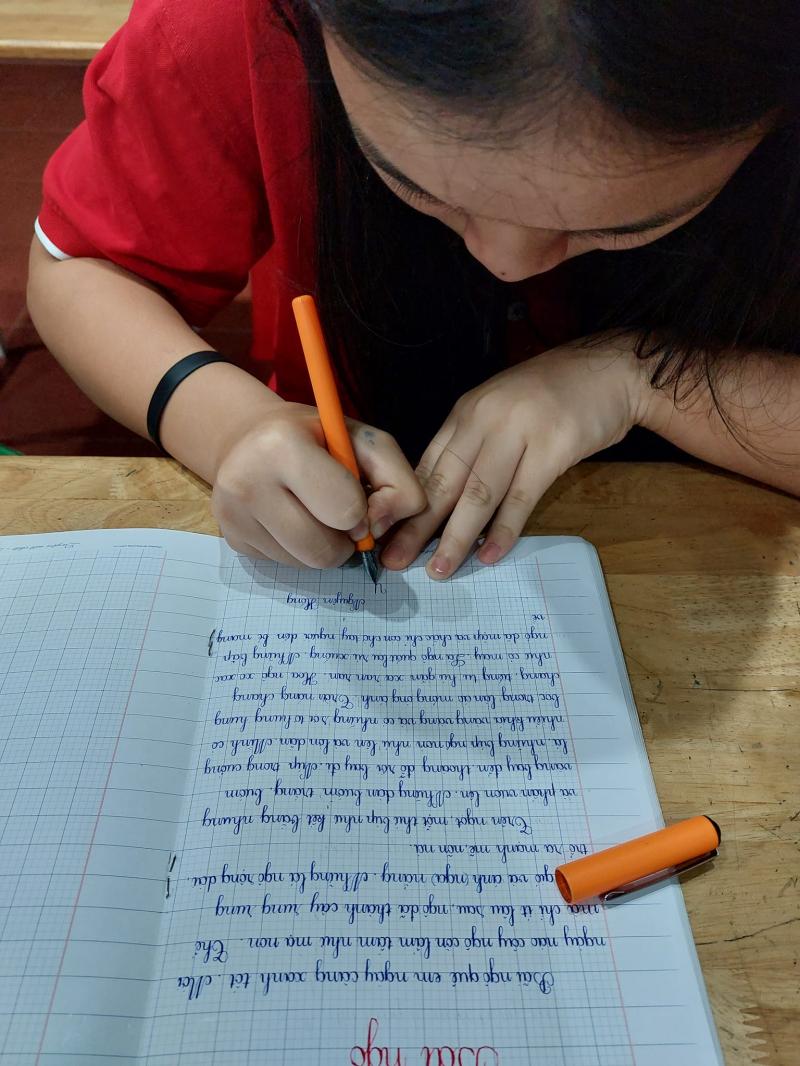 Bãi ngô
Bãi ngô quê em ngày càng xanh tốt. Mới
ngày nào cây ngô còn lấm tấm như mạ non. Thế
mà chỉ ít lâu sau, ngô đã thành cây rung rung
gió và ánh nắng. Những lá ngô rộng dài,
trổ ra mạnh mẽ, nõn nà.
Trên ngọn, một thứ búp như kết bằng nhung
và phấn vươn lên. Những đàn bướm trắng, bướm
vàng bay đến, thoáng đỗ rồi bay đi. Núp trong cuống
lá, những búp ngô non nhú lên và lớn dần. Mình có
nhiều khía vàng vàng và có những sợi tơ hung hung
bọc trong làn áo mỏng óng ánh. Trời nắng chang
chang, tiếng tu hú gần xa ran ran. Hoa ngô xơ xác
như cỏ may. Lá ngô quắt lại rủ xuống. Những bắp
ngô đã mập và chắc chỉ còn chờ tay người đến bẻ mang
về
Nguyên Hồng